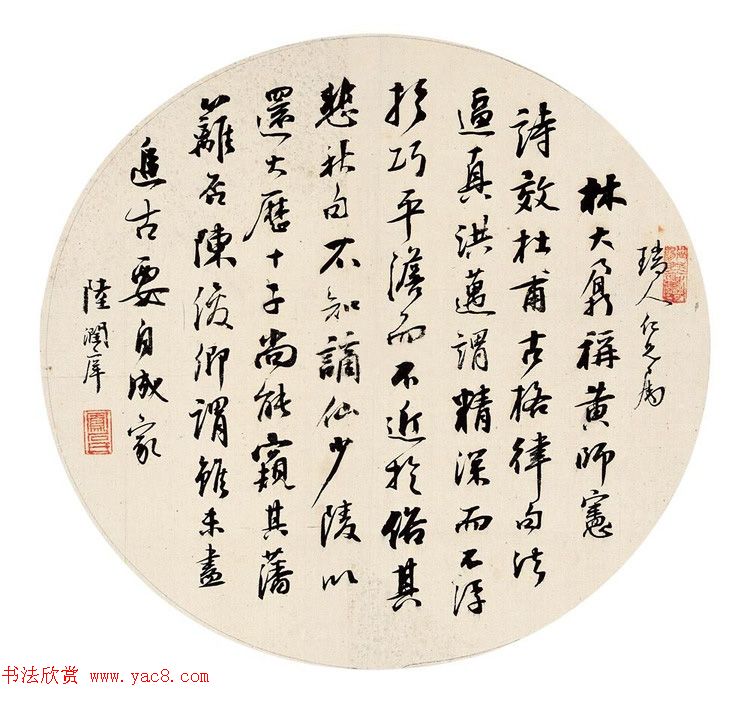 瑞人仁兄属
林大鼐稱黄師憲
詩效杜甫古格律句法
逼真洪邁謂精深而不浮
於巧平澹而不近於俗其
悲秋句不知謫仙少陵以
還大歷十子尚能窺其藩
籬否陳俊卿謂雖未盡
追古要自成家
陸潤庠
书法欣赏 www.yac8.com